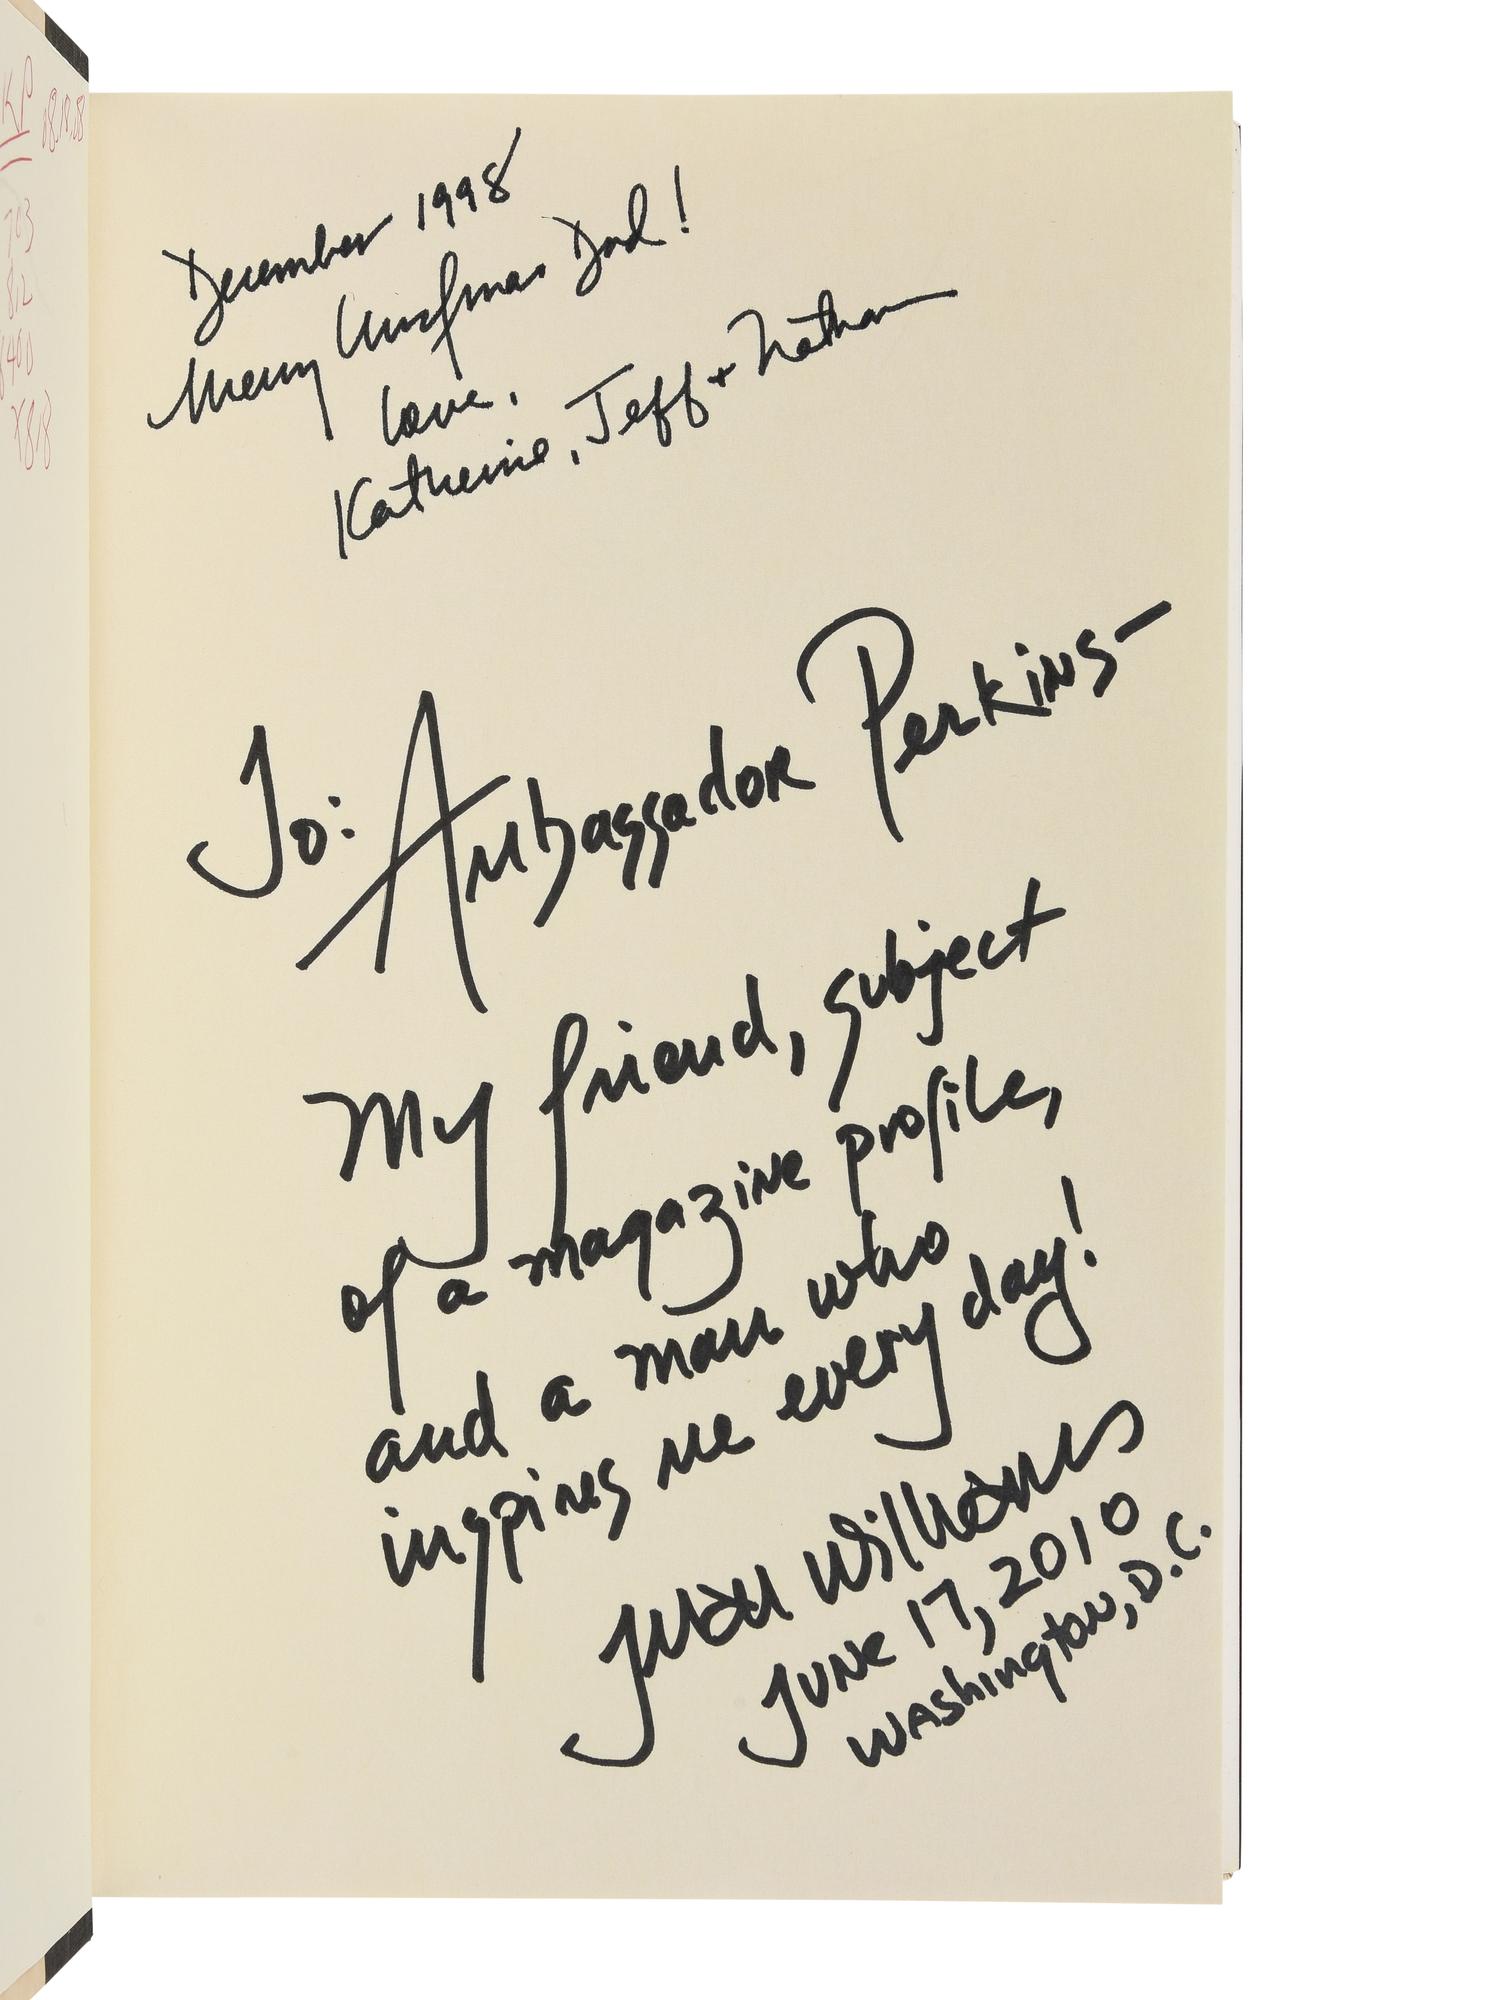 KP
703
812
400
X818
December 1998
Merry Christmas Dad!
Love,
Katherine, Jeff + Nathan
To: Ambassador Perkins-
My friend, subject
of a magazine profile,
and a man who
inspires me every day!
Juan Williams
June 17, 2010
Washington, D.C.